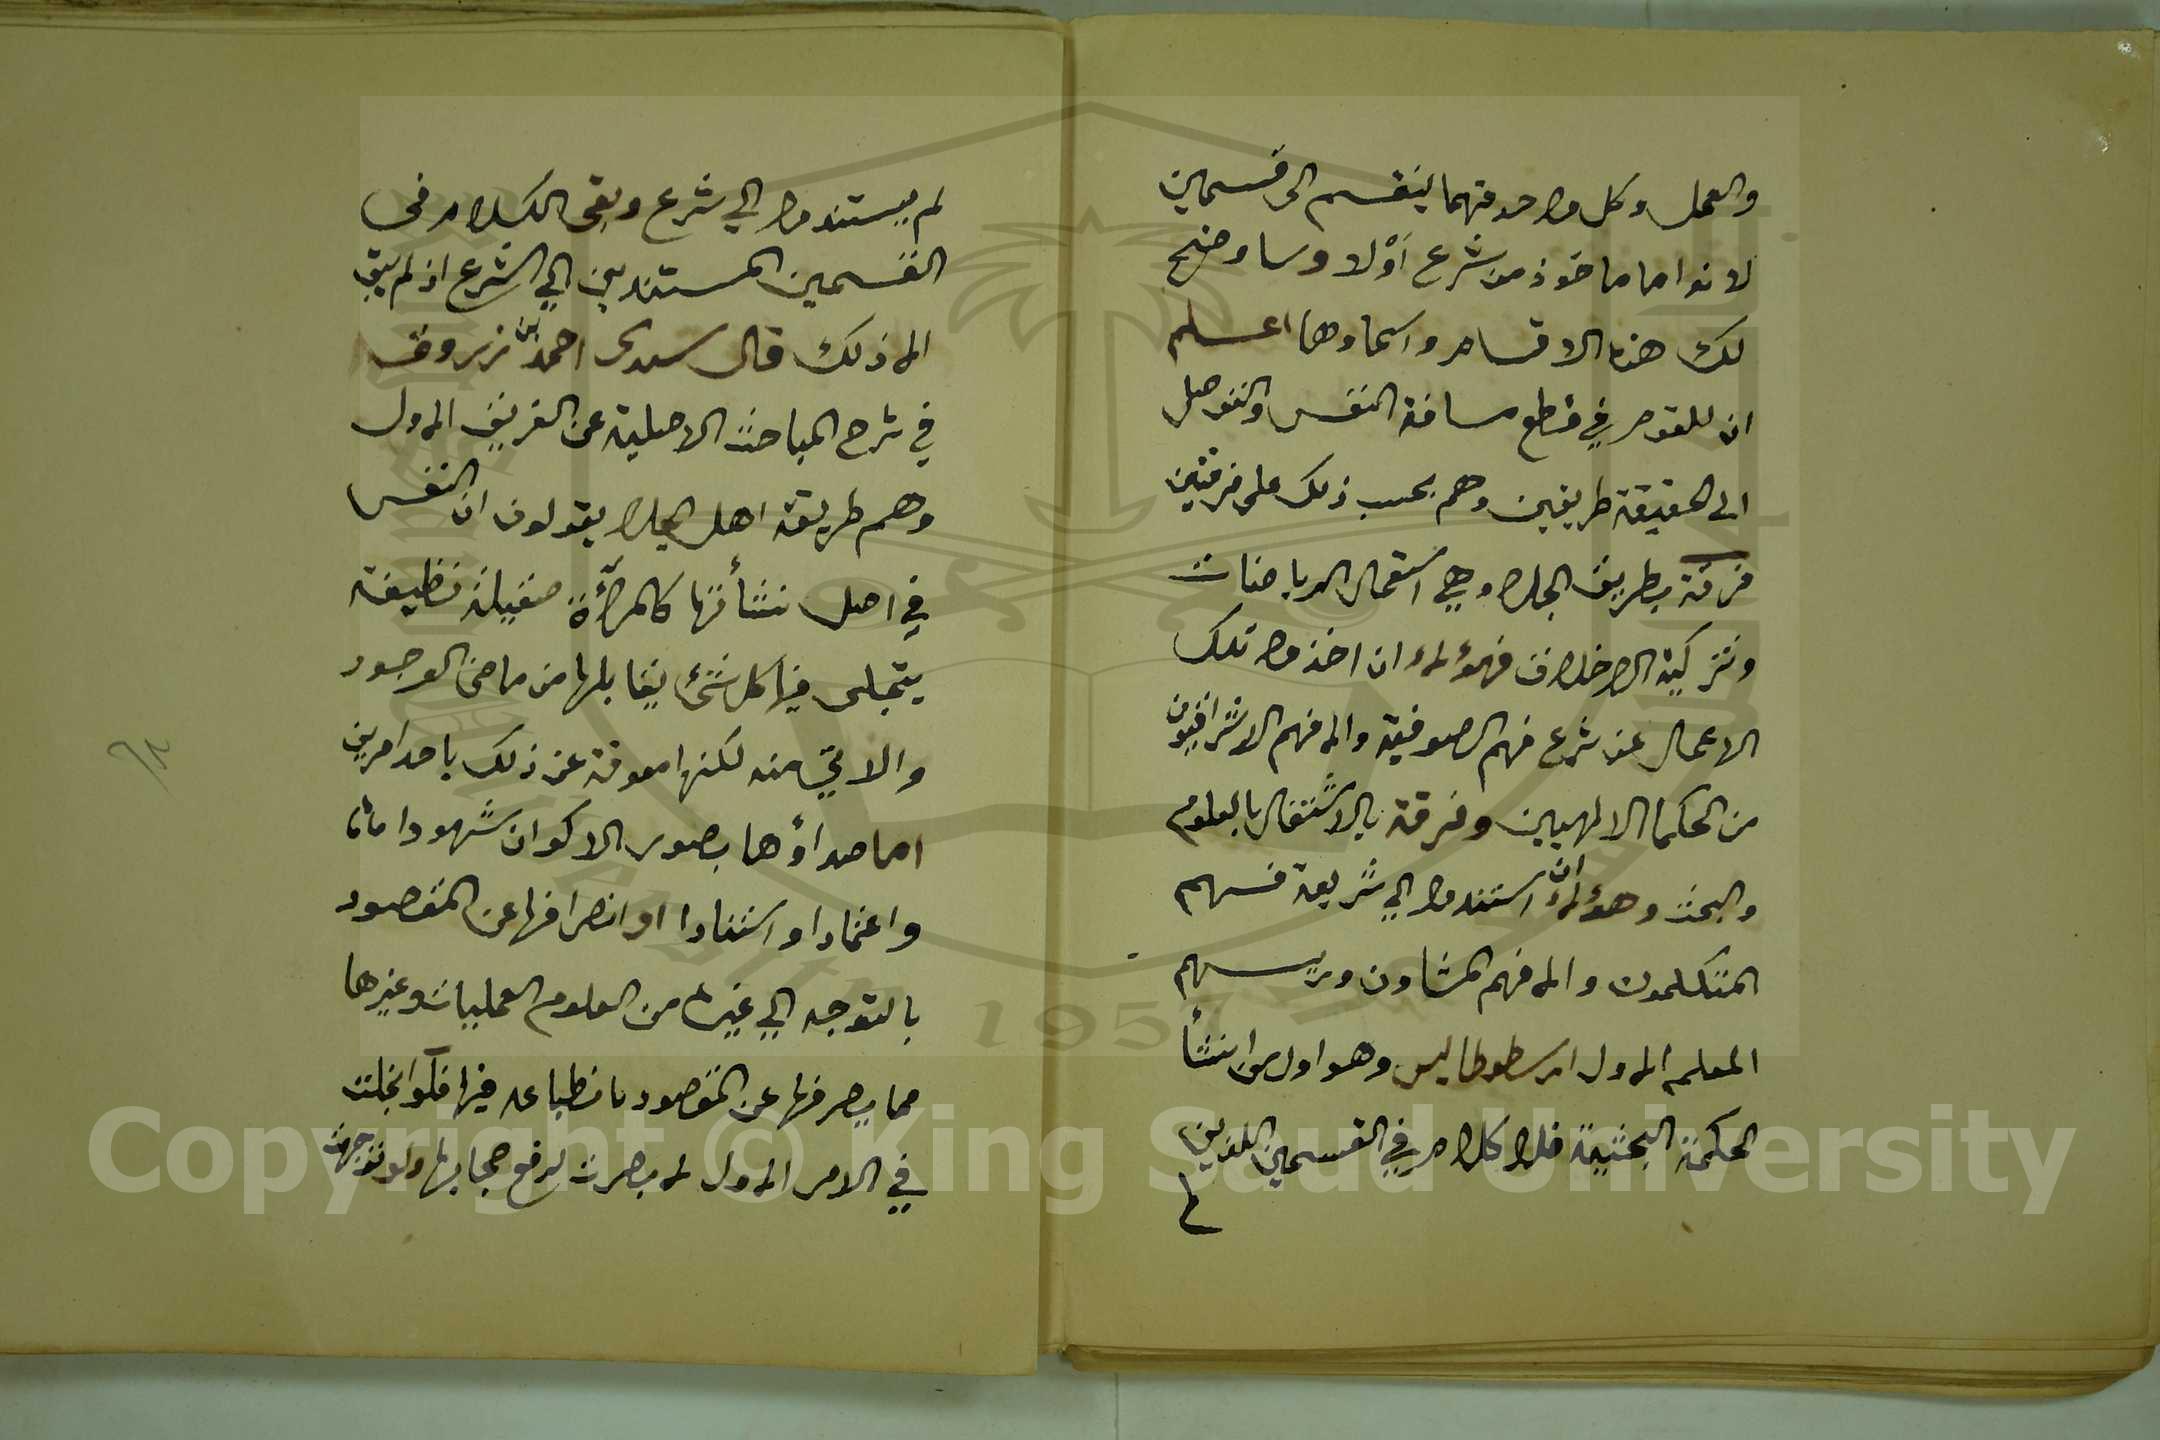 والعمل وكل واحد منهما ينقسم الى قسمين
لانه اما ماخوذ من شرع أوْلا وساوضح
لك هذه الاقسام واسماوها اعلم
ان للقوم في قطع مسافة النفس والتوصل
الى الحقيقة طريقين وهم بحسب ذلك على فرقتين
فرقة بطريق الجلا وهي استعمال الرياضات
وتزكية الاخلاق فهؤلاء ان اخذوا تلك
الاعمال عن شرع فهم الصوفية والا فهم الاشراقيون
من الحكما الالهيين وفرقة بالاشتغال بالعلوم
والبحث وهؤلاء ان استندوا الي شريعة فهم
المتكلمون والا فهم المشاون ورييسهم
المعلم الاول ارسطوطاليس وهو اول من انشأ
الحكمة البحثية فلا كلام في القسمين اللذين
لم
لم يستندوا الي شرع وبقى الكلام في
القسمين المستندين الي الشرع اذ لم يبق
الا ذلك قال سيدى احمد بن زروق
في شرح المباحث الاصلية عن الفريق الاول
وهم طريقة اهل الجلا يقولون ان النفس
في اصل نشأتها كالمرآة صقيلة نظيفة
يتجلى فيها كل شئ يقابلها من ماضى الوجود
والاتي منه لكنها معوقة عن ذلك باحد امرين
اما صداؤها بصور الاكوان شهودا مّا
واعتمادا واستنادا او انصرافها عن المقصود
بالتوجه الي غيره من العلوم العمليات وغيرها
مما يصرفها عن المقصود بانطباعه فيها فلو انجلت
في الامر الاول لابصرت لرفع حجابها ولو توجهت
Copyright © King Saud University
1957